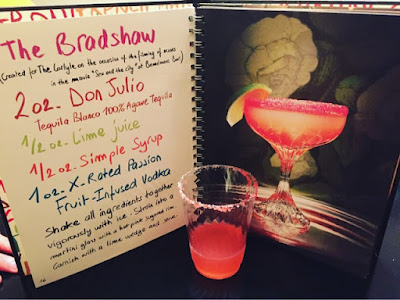 The Bradshaw
(Created for The Carlyle on the occasion of the filming of scenes
in the movie "Sex and the city" at Bemelmans Bar)
2 oz. Don Julio
Tequila Blanco 100% Agave Tequila
1/2 oz. Lime juice
1/2 oz. Simple Syrup
1 oz. X-Rated Passion
Fruit-Infused Vodka
Shake all ingredients together
vigorously with ice. Strain into a
martini glass with a hot pink sugared rim.
Garnish with a lime wedge and serve.